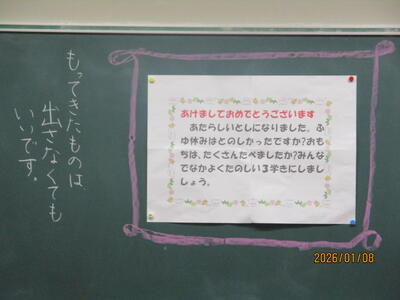 もってきたものは、
出さなくても
いいです。
あけましておめでとうございます
あたらしいとしになりました。ふ
ゆ休みはとのしかったですか?おも
ちは、たくさんたべましたか?みんな
でなかよくたのしい3学きにしまし
しょう。
2026/01/08